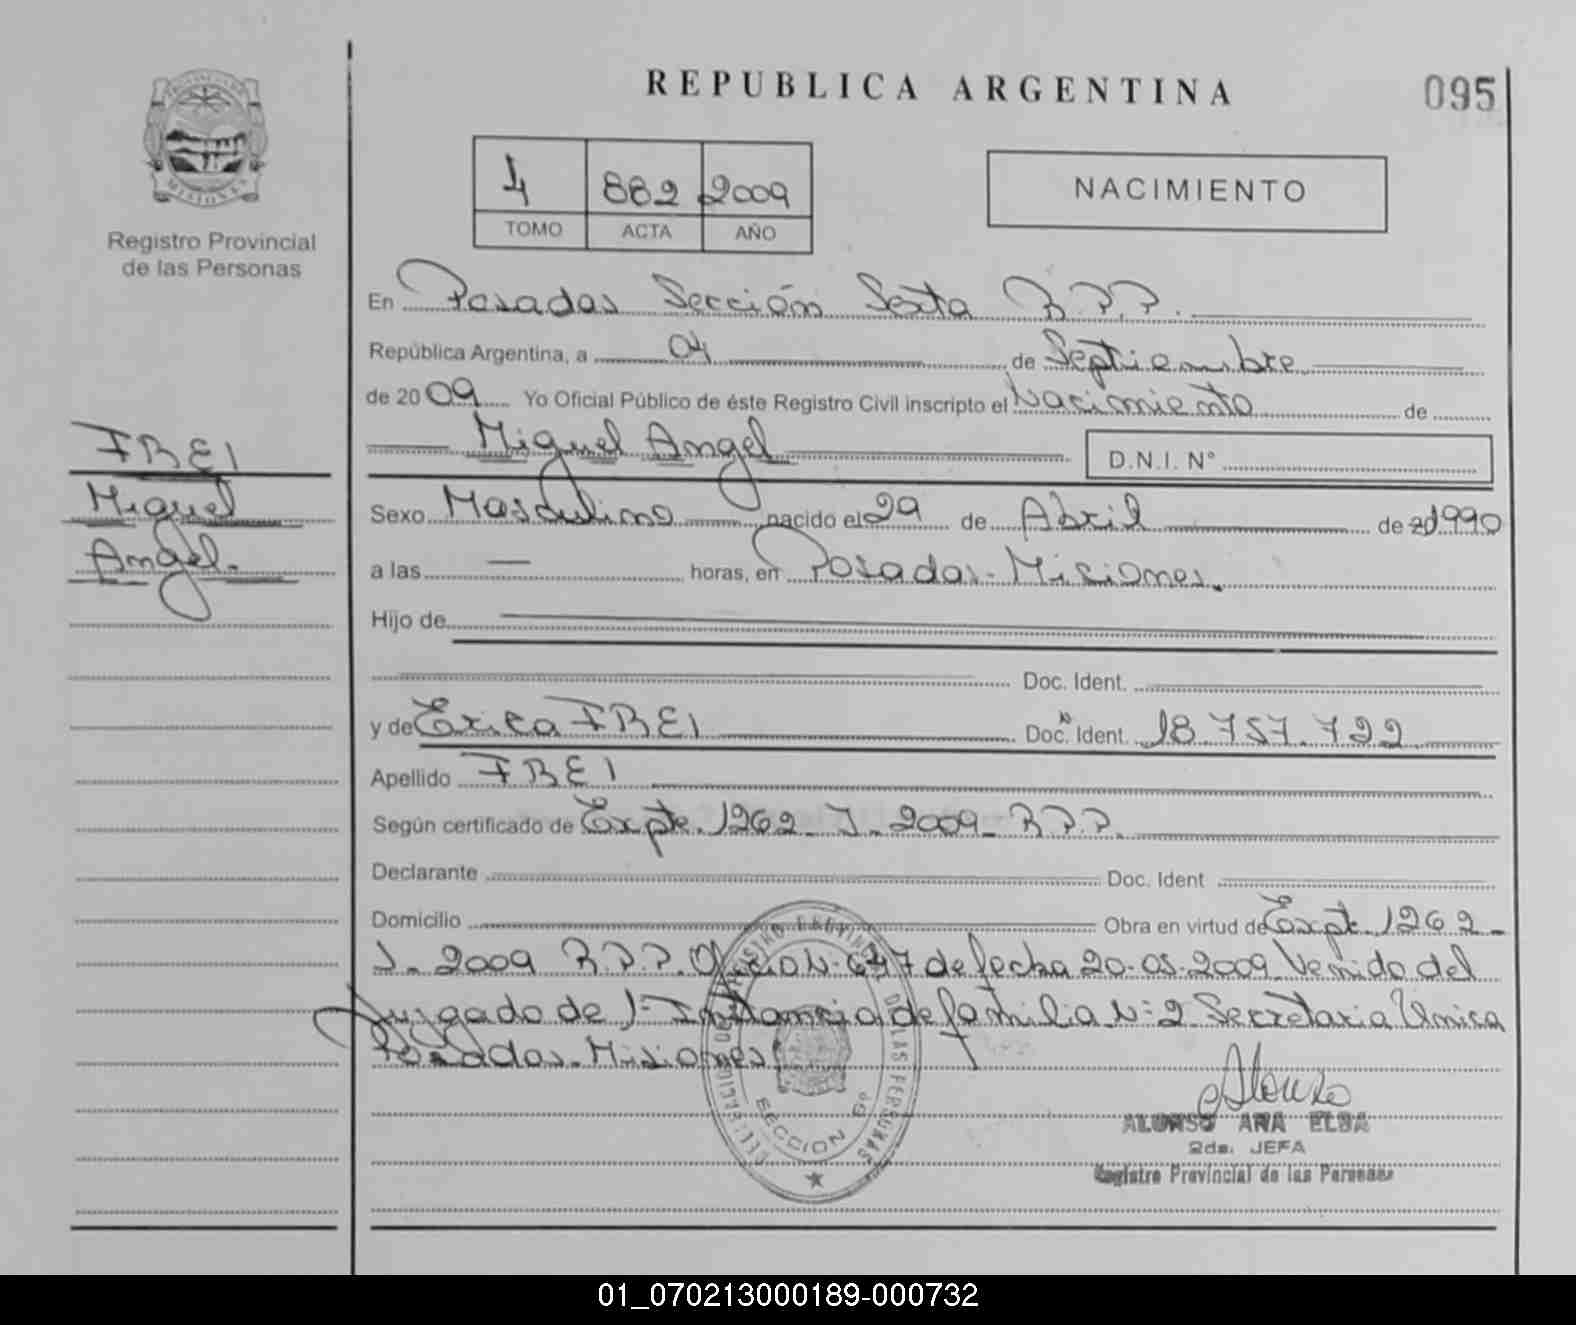 REPUBLICA ARGENTINA
095
PROVINCIA DE MISIONES
Registro Provincial
de las Personas
4 882 2009
TOMO ACTA AÑO
NACIMIENTO
En Posadas Sección Sexta R.P.P.
República Argentina, a 04 de Septiembre
de 2009 Yo Oficial Público de éste Registro Civil inscripto el Nacimiento de
Miguel Angel D.N.I. N°
FREI
Miguel
Angel.
Sexo Masculino nacido el 29 de Abril de 1990
a las — horas, en Posadas - Misiones.
Hijo de
Doc. Ident.
y de Erica FREI Doc. Ident. 18.757.722
Apellido FREI
Según certificado de Expte. 1262 - J - 2009 - R.P.P.
Declarante Doc. Ident
Domicilio Obra en virtud de Expt. 1262 -
J - 2009 R.P.P. Oficio N° 647 de fecha 20-05-2009 Venido del
Juzgado de 1° Instancia de familia N° 2 Secretaria Única
Posadas - Misiones
REGISTRO PROVINCIAL DE LAS PERSONAS
SECCION 6°
ALONSO ANA ELBA
2da. JEFA
Registro Provincial de las Personas
01_070213000189-000732